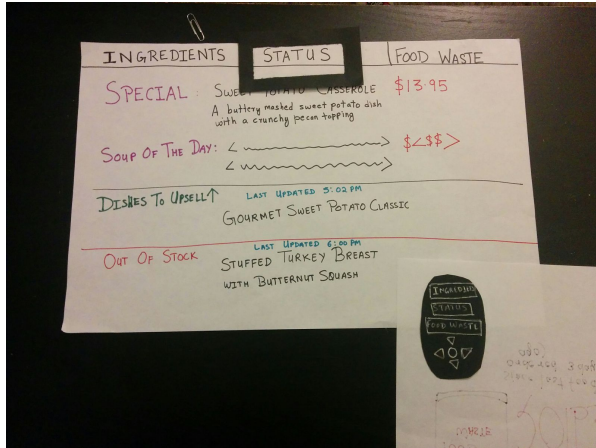 INGREDIENTS STATUS FOOD WASTE
SPECIAL: SWEET POTATO CASSEROLE $13.95
A buttery mashed sweet potato dish
with a crunchy pecan topping
SOUP OF THE DAY: < > $<$$>
< >
DISHES TO UPSELL↑ LAST UPDATED 5:02 PM
GOURMET SWEET POTATO CLASSIC
OUT OF STOCK LAST UPDATED 6:00 PM
STUFFED TURKEY BREAST
WITH BUTTERNUT SQUASH
INGREDIENTS
STATUS
FOOD WASTE
ago)
ordered 3 days